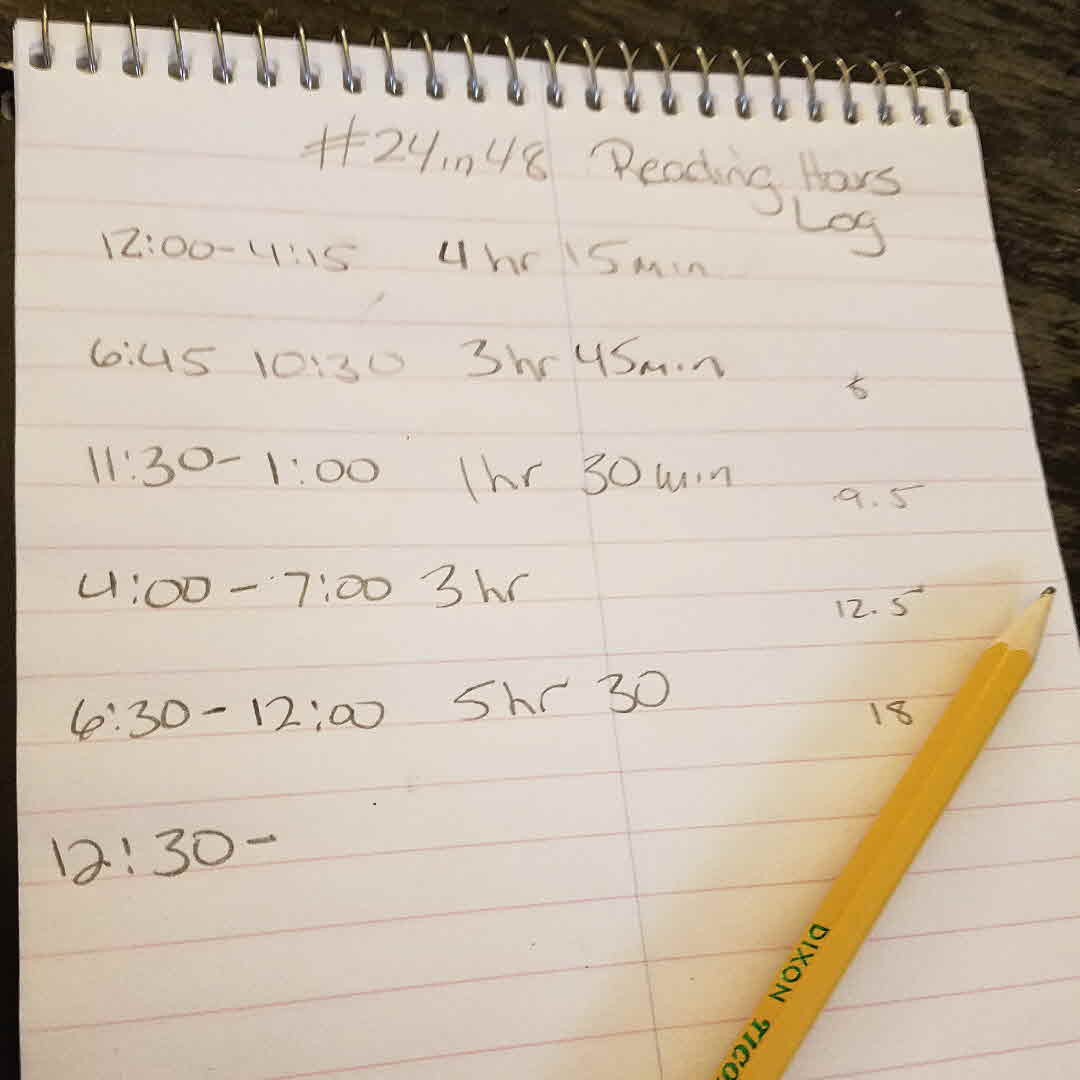 #24in48 Reading Hours
Log
12:00-4:15 4 hr 15min
6:45 10:30 3hr 45min
11:30- 1:00 1hr 30min
9.5
4:00 - 7:00 3hr
12.5
6:30 - 12:00 5hr 30
18
12:30-
DIXON TICO